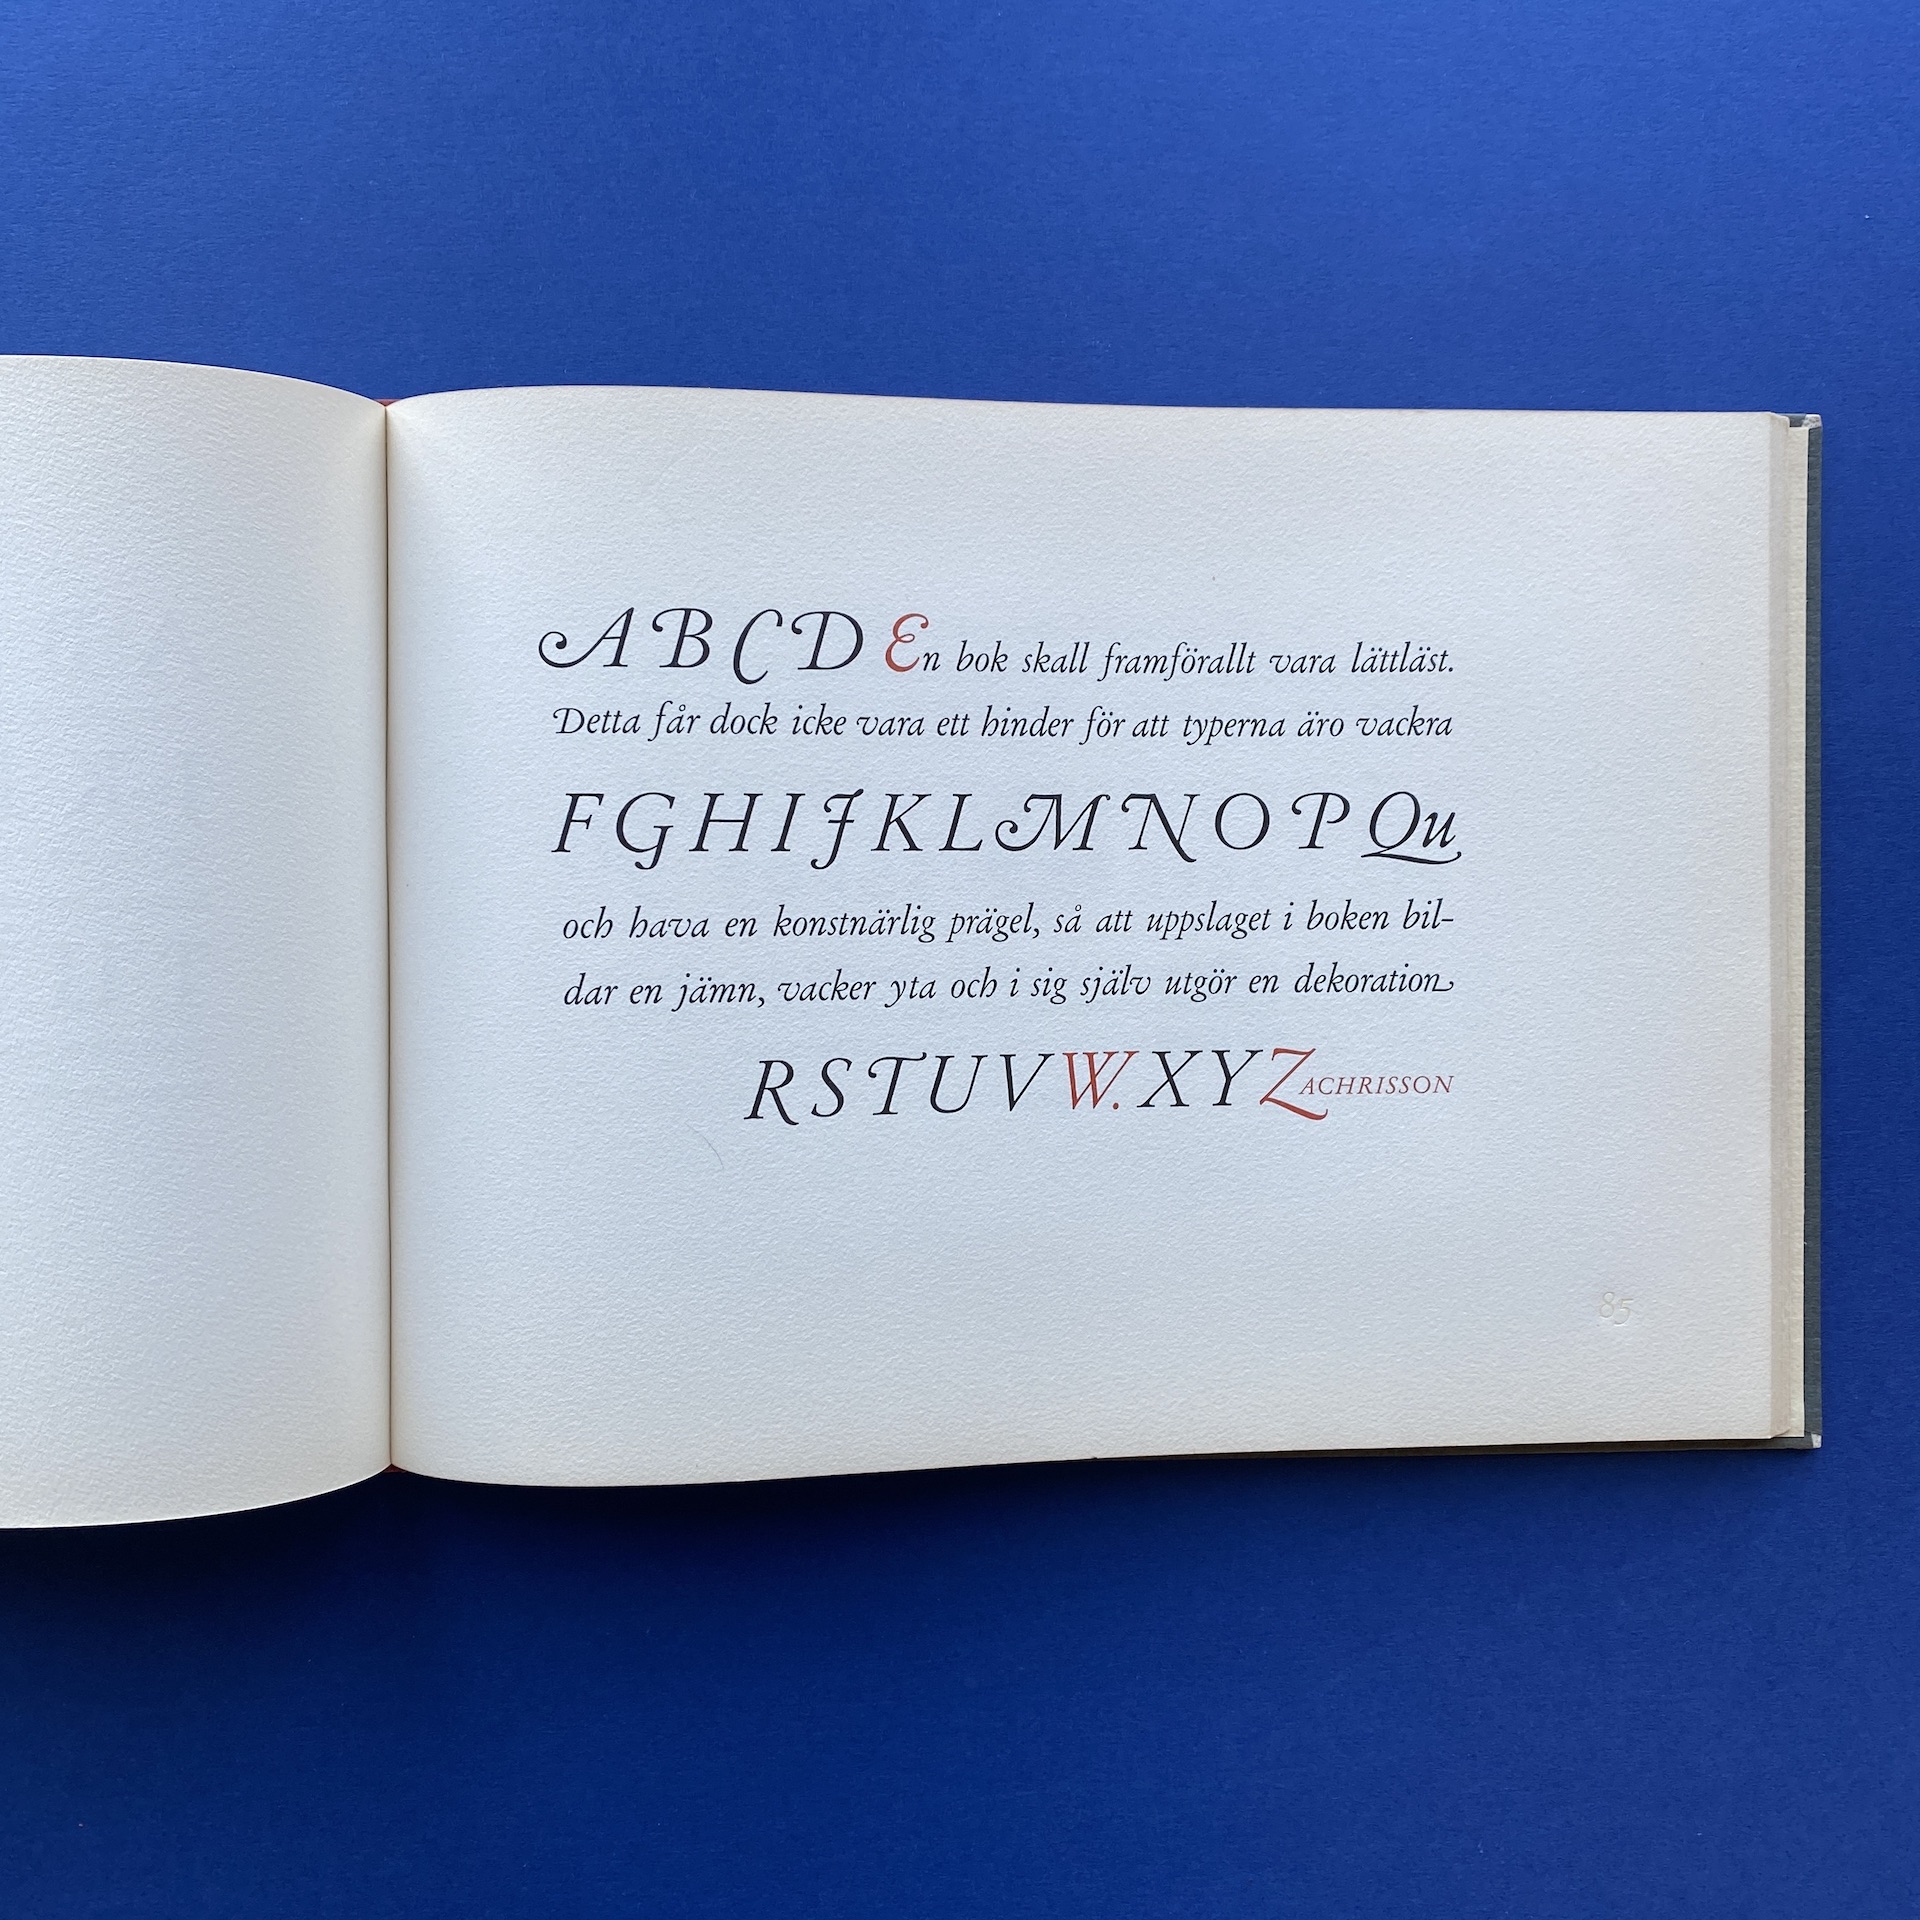 A B C D En bok skall framförallt vara lättläst.
Detta får dock icke vara ett hinder för att typerna äro vackra
F G H I J K L M N O P Qu
och hava en konstnärlig prägel, så att uppslaget i boken bil-
dar en jämn, vacker yta och i sig själv utgör en dekoration
R S T U V W. X Y ZACHRISSON
85